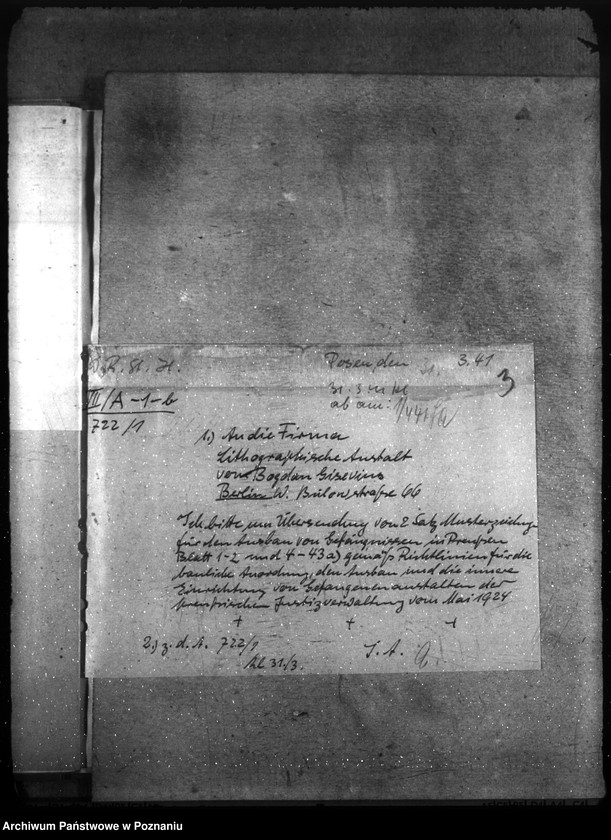 D. R. St. H.
Posen, den 31. 3. 41
3
III/A-1-b
722/1
31. 3. 41 Kl
ab am: 1/4 41
1.) An die Firma
Lithographische Anstalt
von Bogdan Gisevius
Berlin W. Bülowstraße 66
Ich bitte, um Übersendung von 2 Satz Musterzeichng.
für den Ausbau von Gefängnissen in Preußen
Blatt 1-2 und 4-43a) gemäß Richtlinien für die
bauliche Anordnung, den Ausbau und die innere
Einrichtung von Gefangenenanstalten der
preußischen Justizverwaltung vom Mai 1924
2.) z. d. A. 722/1
J. A.
Kl 31./3.
Archiwum Państwowe w Poznaniu